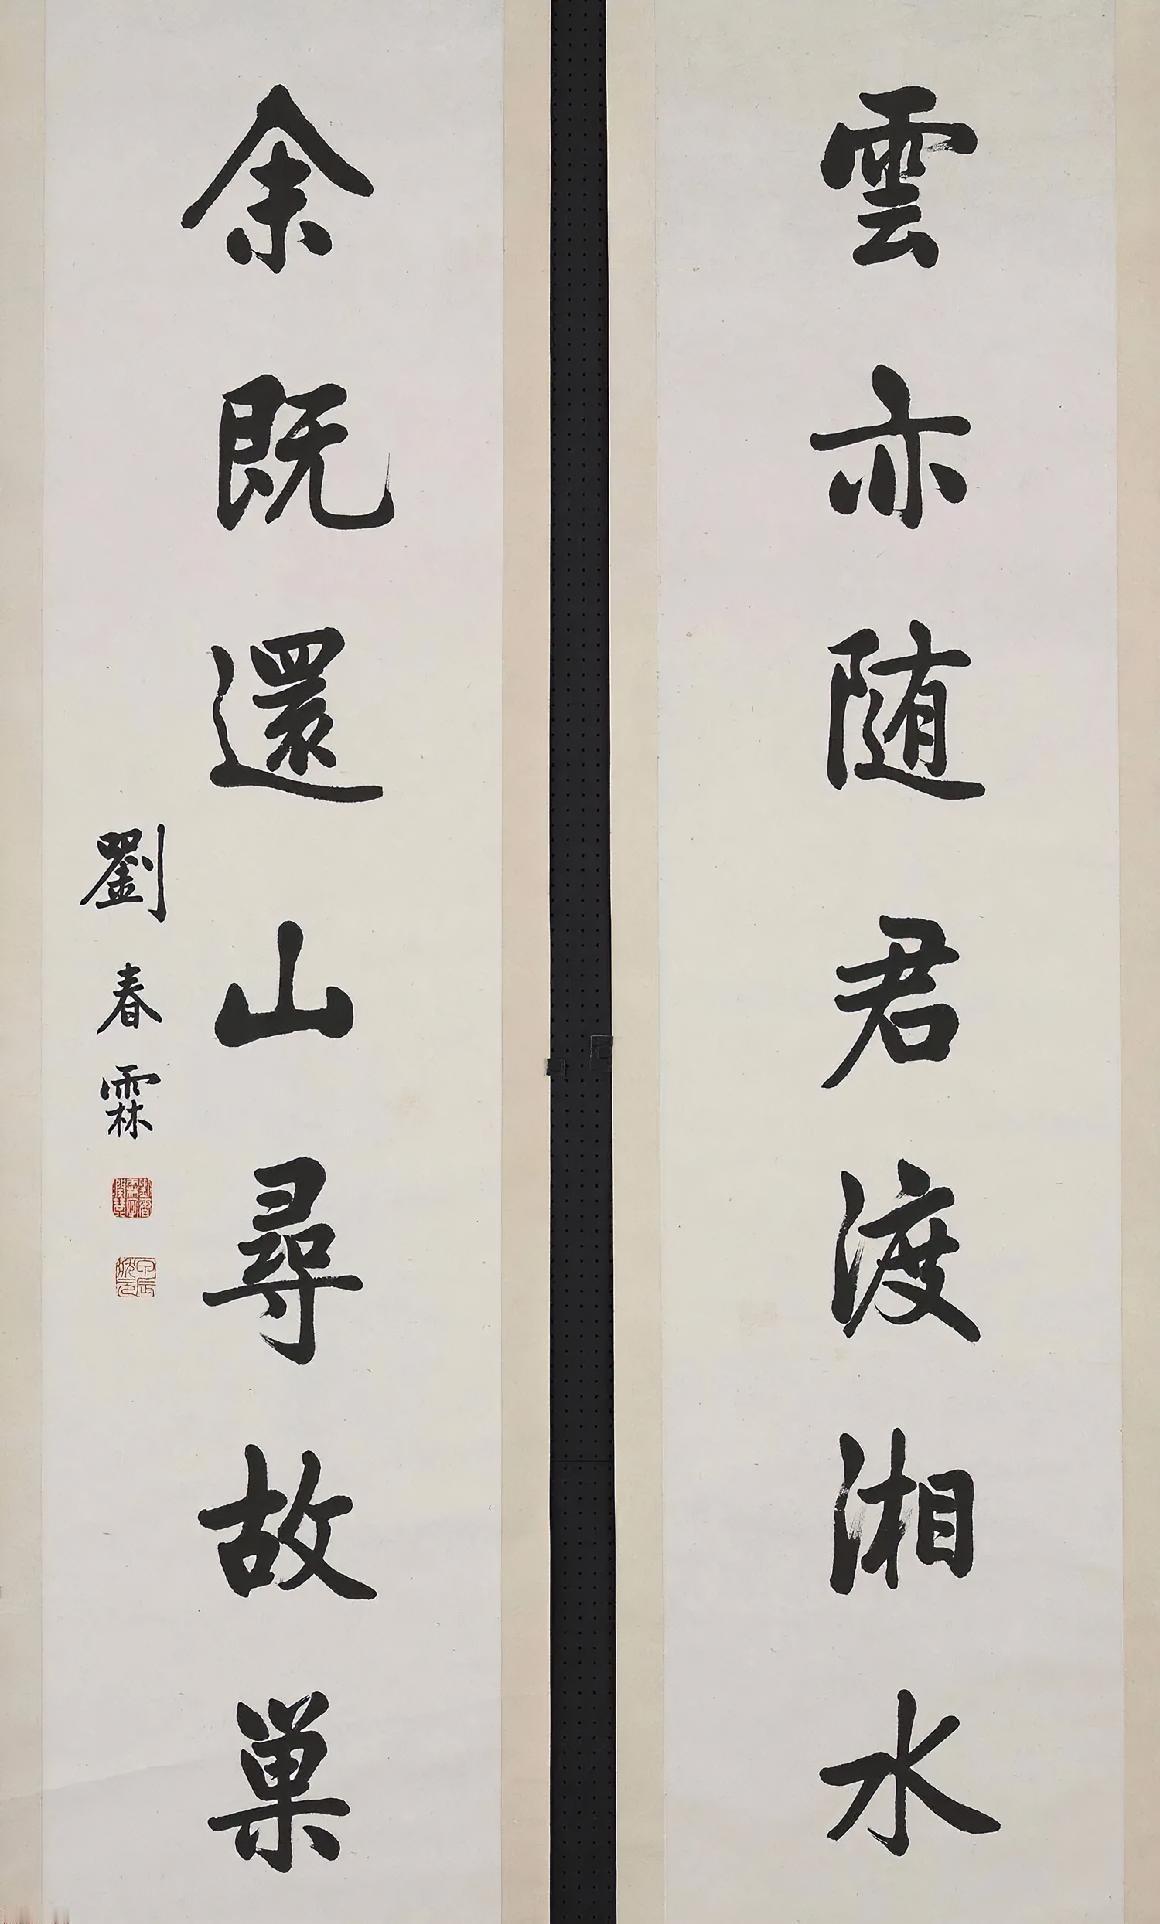 雲亦随君渡湘水
余既還山尋故巢
劉春霖